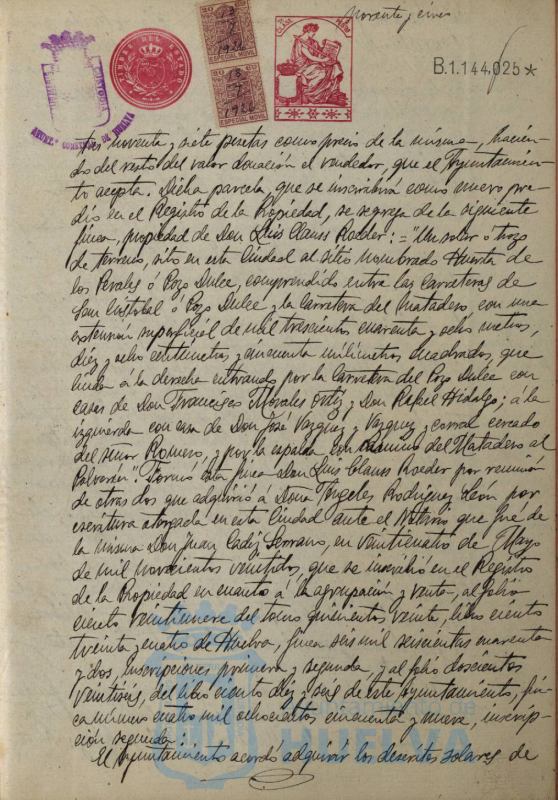 Noventa y cinco
TIMBRE DEL ESTADO
20
ESPECIAL MOVIL
13
7
1926
ESPECIAL MOVIL
13
7
1926
B.1.144.025*
HUELVA
noventa y siete pesetas como precio de la misma, hacien-
do del resto del valor donación el vendedor, que el Ayuntamien-
to acepta. Dicha parcela, que se inscribirá como nuevo pre-
dio en el Registro de la Propiedad, se segrega de la siguiente
finca, propiedad de Don Luis Clauss Roeder: = "Un solar ó trozo
de terreno, sito en esta Ciudad al sitio nombrado Huerta de
los Perales ó Pozo Dulce, comprendido entre las carreteras de
San Cristobal ó Pozo Dulce y la Carretera del Matadero, con una
extensión superficial de mil trescientos cuarenta y ocho metros,
diez y ocho centímetros y cincuenta milímetros cuadrados, que
linda á la derecha entrando por la Carretera del Pozo Dulce con
casas de Don Francisco Morales Ortiz y Don Rafael Hidalgo; á la
izquierda con casa de Don José Vazquez y Vazquez y corral cercado
del señor Romero, y por la espalda con camino del Matadero al
Polvorin". Formó esta finca Don Luis Clauss Roeder por reunión
de otras dos que adquirió á Doña Angeles Rodriguez León por
escritura otorgada en esta Ciudad ante el Notario que fué de
la misma Don Juan Cadiz Serrano, en veinticuatro de Mayo
de mil novecientos veintidos, que se inscribió en el Registro
de la Propiedad en cuanto á la agrupación y venta, al folio
ciento veintinueve del tomo quinientos veinte, libro ciento
treinta y cuatro de Huelva, finca seis mil seiscientos cuarenta
y dos, inscripciones primera y segunda, y al folio doscientos
veintiseis, del libro ciento diez y seis de este Ayuntamiento, fin-
ca número cuatro mil ochocientos cincuenta y nueve, inscrip-
ción segunda.
El Ayuntamiento acordó adquirir los descritos solares de
Ayuntamiento de
HUELVA